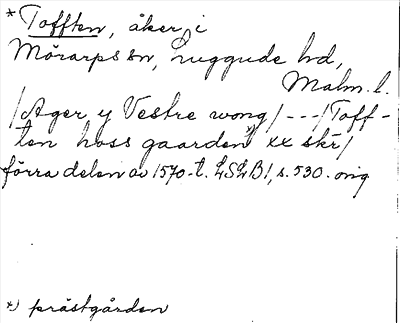 * Tofften, åker i
Mörarps sn, Luggude hd,
Malm. l.
/Ager y Vestre wong/ --- /Toff-
ten hoss gaarden *) xx skr/
förra delen av 1570-t. LSLB1, s. 530. orig
*) prästgården